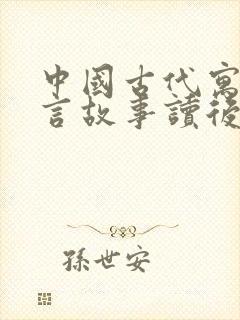 中國古代寓
言故事讀後
孫世安